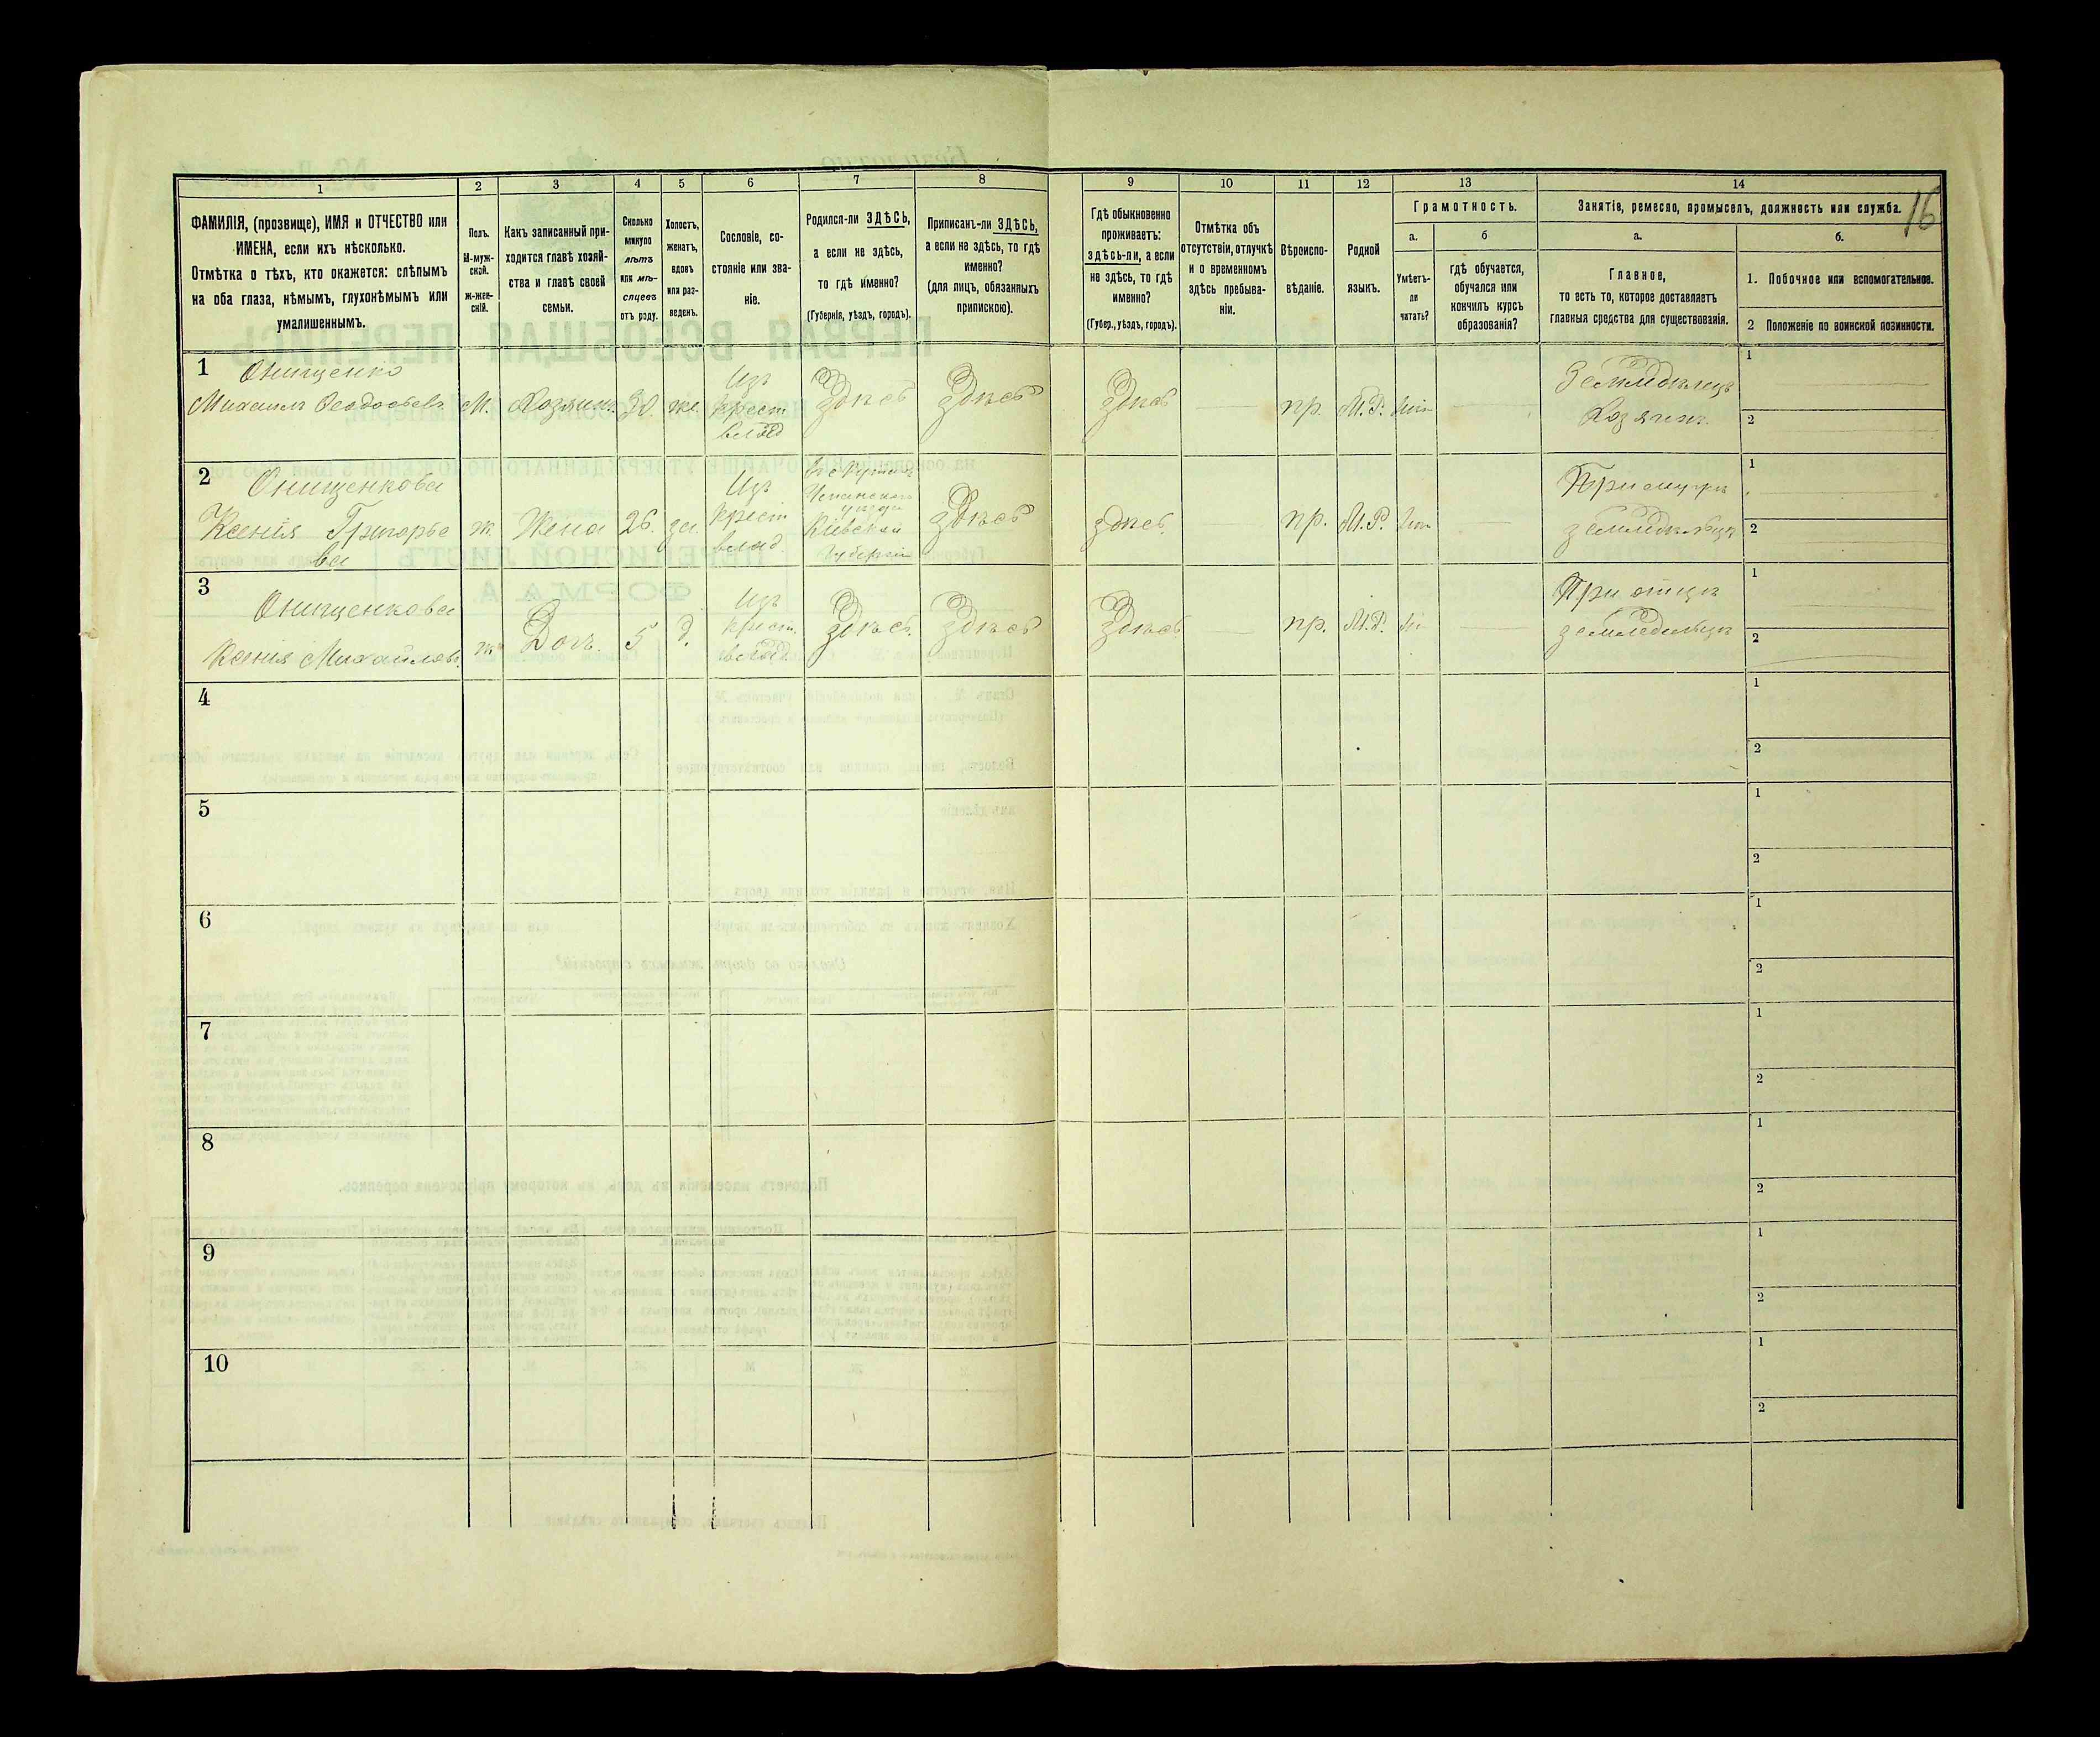 16
1
2
3
4
5
6
7
8
9
10
11
12
13
14
ФАМИЛІЯ, (прозвище), ИМЯ и ОТЧЕСТВО или
ИМЕНА, если ихъ нѣсколько.
Отмѣтка о тѣхъ, кто окажется: слѣпымъ
на оба глаза, нѣмымъ, глухонѣмымъ или
умалишеннымъ.
Полъ.
М-муж-
ской.
ж-жен-
скій.
Какъ записанный при-
ходится главѣ хозяй-
ства и главѣ своей
семьи.
Сколько
минуло
лѣтъ
или мѣ-
сяцевъ
отъ роду.
Холостъ,
женатъ,
вдовъ
или раз-
веденъ.
Сословіе, со-
стояніе или зва-
ніе.
Родился-ли ЗДѢСЬ,
а если не здѣсь,
то гдѣ именно?
(Губернія, уѣздъ, городъ).
Приписанъ-ли ЗДѢСЬ,
а если не здѣсь, то гдѣ
именно?
(для лицъ, обязанныхъ
припискою).
Гдѣ обыкновенно
проживаетъ:
здѣсь-ли, а если
не здѣсь, то гдѣ
именно?
(Губер., уѣздъ, городъ).
Отмѣтка объ
отсутствіи, отлучкѣ
и о временномъ
здѣсь пребыва-
ніи.
Вѣроиспо-
вѣданіе.
Родной
языкъ.
Грамотность.
а.
б
Умѣетъ-
ли
читать?
гдѣ обучается,
обучался или
кончилъ курсъ
образованія?
Занятіе, ремесло, промыселъ, должность или служба.
а.
б.
Главное,
то есть то, которое доставляетъ
главныя средства для существованія.
1. Побочное или вспомогательное.
2 Положеніе по воинской повинности.
1 Онищенко
Михаилъ Ѳеодосьевъ М. Хозяинъ. 30. же. Изъ крест. влад Здѣсь Здѣсь Здѣсь пр. М.Р. Земледѣлецъ Хозяинъ. 1 2
2 Онищенкова
Ксенія Григорье
ва ж. Жена 26. за. Изъ крест влад. Кіевской губерніи здѣсь здѣсь. пр. М.Р. При мужѣ земледѣльцѣ 1 2
3 Онищенкова
Ксенія Михайлов. ж Дочь. 5 д. Изъ крест. влад. Здѣсь. Здѣсь Здѣсь пр. М.Р. При отцѣ земледѣльцѣ 1 2
4 1 2
5 1 2
6 1 2
7 1 2
8 1 2
9 1 2
10 1 2